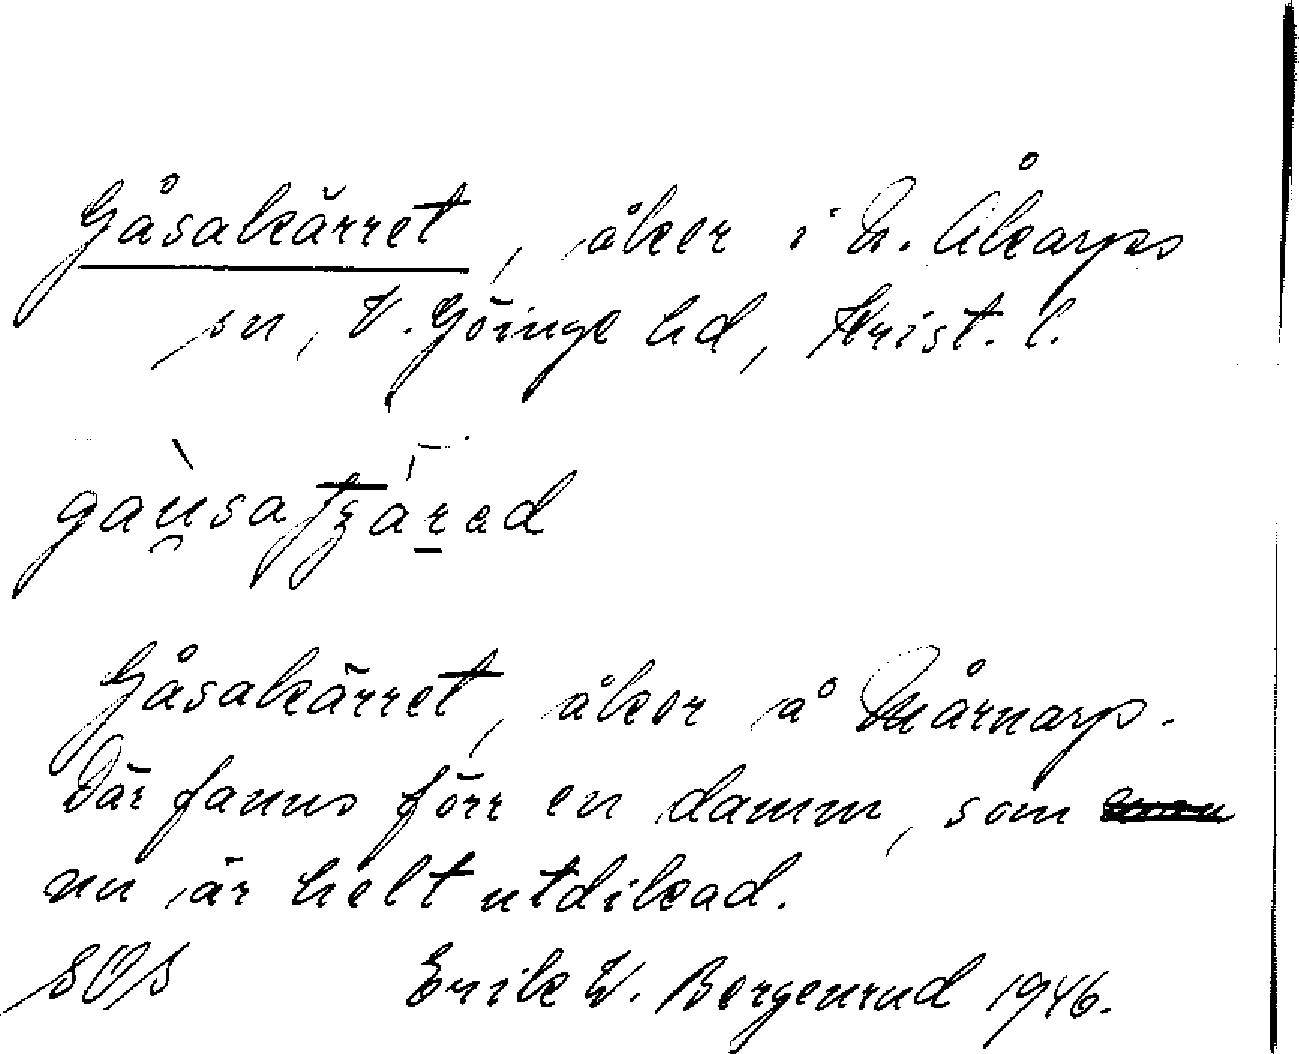 Gåsakärret, åker i N. Åkarps
sn, V. Göinge hd, Krist. l.
Gåsakärret, åker å Mårnarp.
Där fanns förr en damm, som
nu är helt utdikad.
SOS Erik W. Bergenrud 1946.